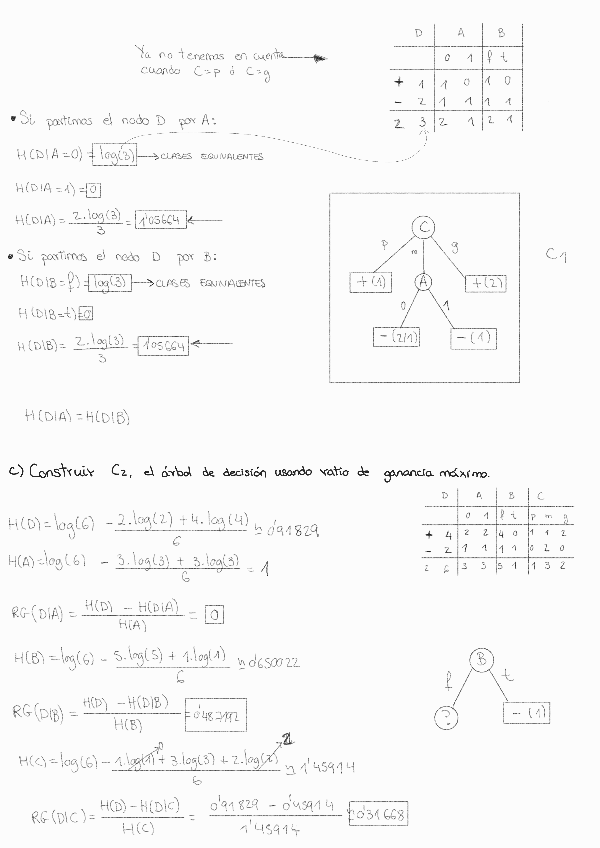 Ya no tenemos en cuenta
cuando C=p ó C=g
D A B
0 1 f t
+ 1 1 0 1 0
- 2 1 1 1 1
2 3 2 1 2 1
• Si partimos el nodo D por A:
H(D|A=0) = log(3) → CLASES EQUIVALENTES
H(D|A=1) = 0
H(D|A) = 2·log(3) / 3 = 1'05664
• Si partimos el nodo D por B:
H(D|B=f) = log(3) → CLASES EQUIVALENTES
H(D|B=t) = 0
H(D|B) = 2·log(3) / 3 = 1'05664
H(D|A) = H(D|B)
C
p m g
+(1) A +(2)
0 1
-(2/1) -(1)
C1
c) Construir C2, el árbol de decisión usando ratio de ganancia máximo.
D A B C
0 1 f t p m g
+ 4 2 2 4 0 1 1 2
- 2 1 1 1 1 0 2 0
2 6 3 3 5 1 1 3 2
H(D) = log(6) - 2·log(2) + 4·log(4) / 6 ≃ 0'91829
H(A) = log(6) - 3·log(3) + 3·log(3) / 6 = 1
RG(D|A) = H(D) - H(D|A) / H(A) = 0
H(B) = log(6) - 5·log(5) + 1·log(1) / 6 ≃ 0'650022
RG(D|B) = H(D) - H(D|B) / H(B) = 0'487192
B
f t
? -(1)
H(C) = log(6) - 1·log(1) 0 + 3·log(3) + 2·log(2) 1 / 6 ≃ 1'45914
RG(D|C) = H(D) - H(D|C) / H(C) = 0'91829 - 0'45914 / 1'45914 = 0'31668